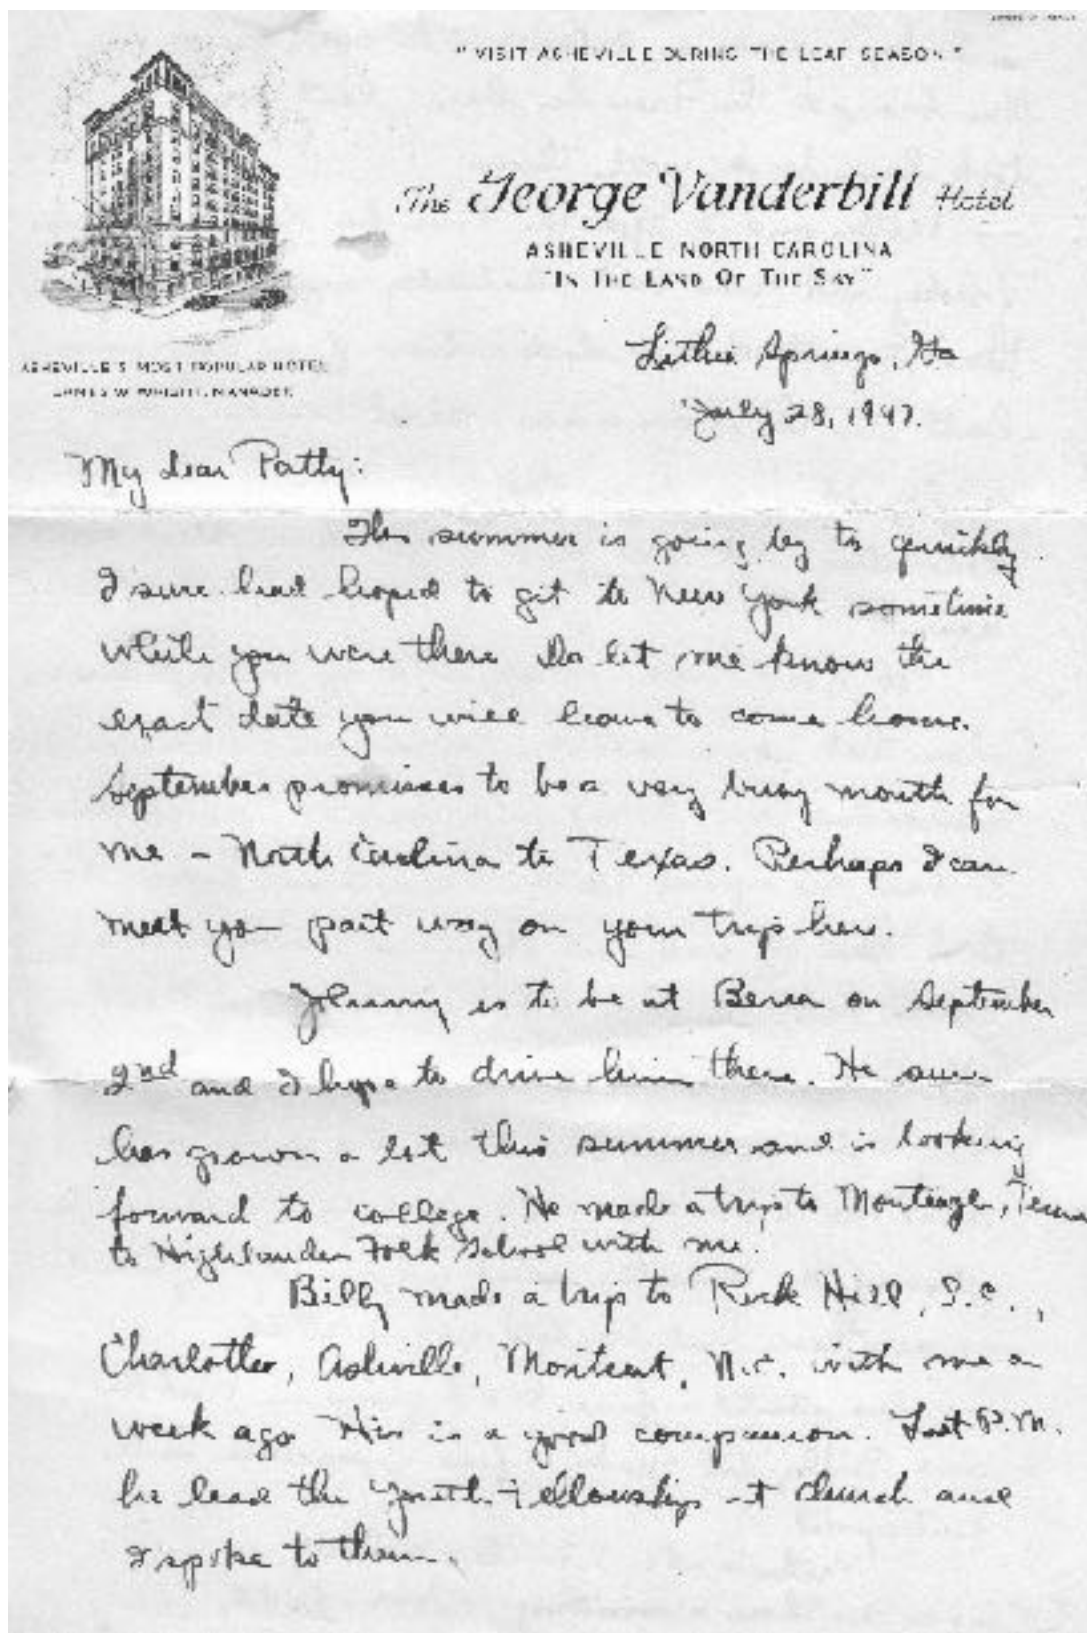 "VISIT ASHEVILLE DURING THE LEAF SEASON"
The George Vanderbilt Hotel
ASHEVILLE NORTH CAROLINA
"IN THE LAND OF THE SKY"
ASHEVILLE'S MOST POPULAR HOTEL
JAMES W WRIGHT, MANAGER
Lithia Springs, Ga
July 28, 1947.
My dear Patty:
This summer is going by to quickly
I sure had hoped to get to New York sometime
while you were there Do let me know the
exact date you will leave to come home.
September promises to be a very busy month for
me - North Carolina to Texas. Perhaps I can
meet you part way on your trip here.
Johnny is to be at Berea on September
2nd and I hope to drive him there. He sure
has grown a lot this summer and is looking
forward to college. He made a trip to Monteagle, Tenn
to Highlander Folk School with me.
Billy made a trip to Rock Hill, S.C.,
Charlotte, Asheville, Montreat, N.C. with me a
week ago He is a good companion. Last P.M.
he lead the Youth Fellowship at church and
I spoke to them.